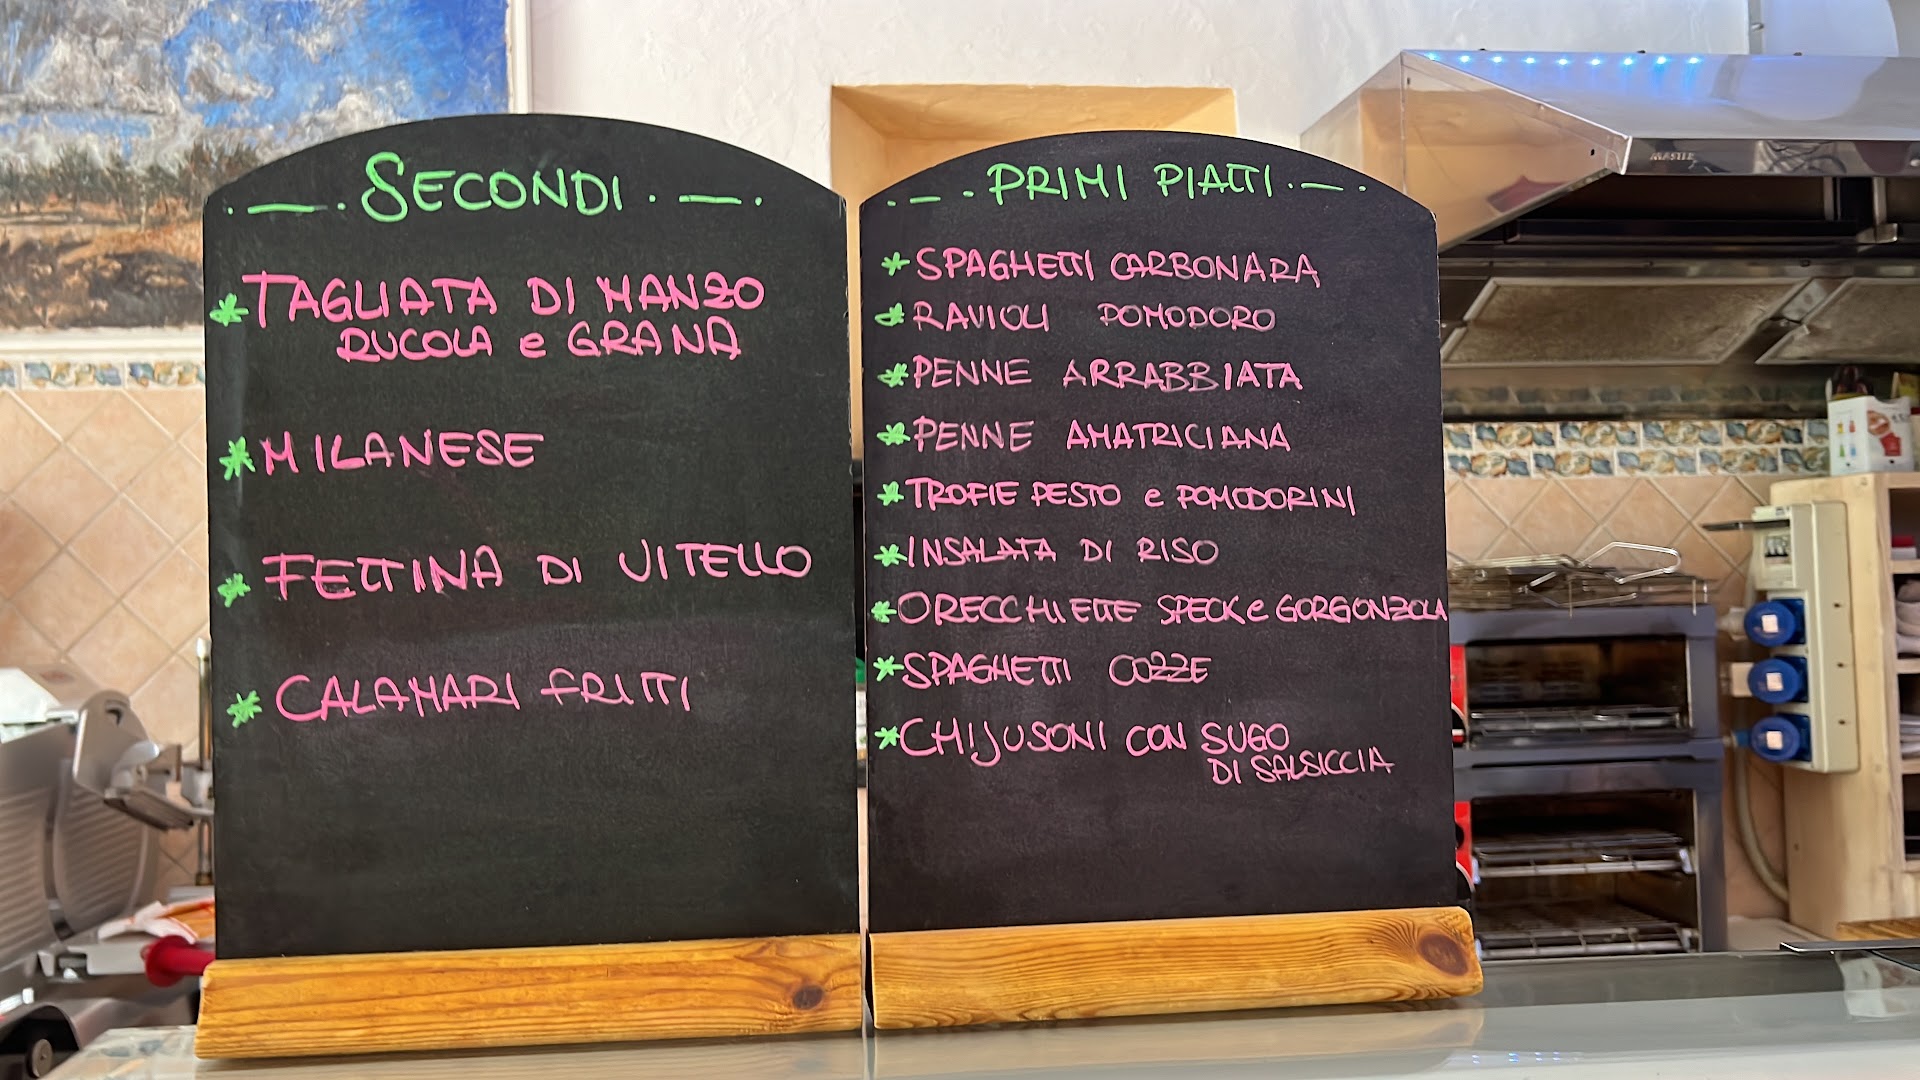 SECONDI
* TAGLIATA DI MANZO
RUCOLA e GRANA
* MILANESE
* FETTINA DI VITELLO
* CALAMARI FRITTI
PRIMI PIATTI
* SPAGHETTI CARBONARA
* RAVIOLI POMODORO
* PENNE ARRABBIATA
* PENNE AMATRICIANA
* TROFIE PESTO e POMODORINI
* INSALATA DI RISO
* ORECCHIETTE SPECK e GORGONZOLA
* SPAGHETTI COZZE
* CHIJUSONI CON SUGO
DI SALSICCIA